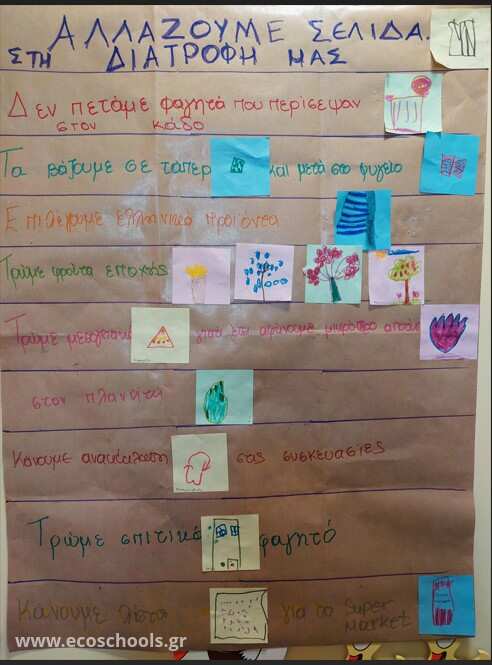 ΑΛΛΑΖΟΥΜΕ ΣΕΛΙΔΑ
ΣΤΗ ΔΙΑΤΡΟΦΗ ΜΑΣ
Δεν πετάμε φαγητά που περίσεψαν
στον κάδο
Τα βάζουμε σε ταπερ και μετά στο ψυγείο
Επιλέγουμε ελληνικά προϊόντα
Τρώμε φρούτα εποχής
Τρώμε μεσογειακά γιατί έτσι αφήνουμε μικρότερο αποτύ
στον πλανήτη
Κάνουμε ανακύκλωση στις συσκευασίες
Τρώμε σπιτικό φαγητό
Κάνουμε λίστα για το Super
Market
www.ecoschools.gr